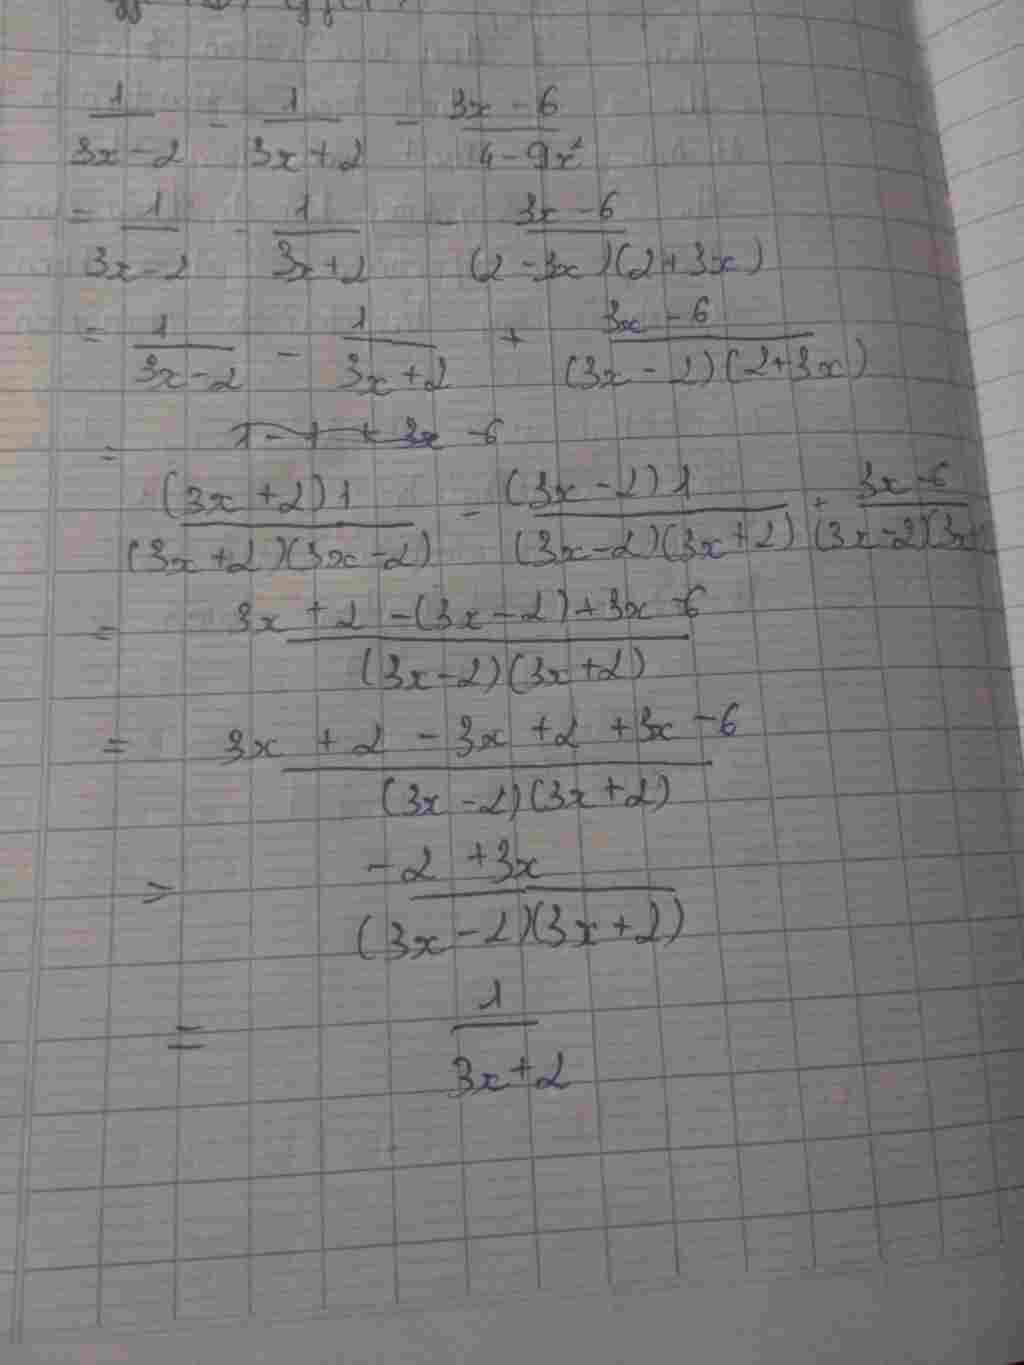 1/(3x-2) - 1/(3x+2) - (3x-6)/(4-9x²)
= 1/(3x-2) - 1/(3x+2) - (3x-6)/((2-3x)(2+3x))
= 1/(3x-2) - 1/(3x+2) + (3x-6)/((3x-2)(2+3x))
= 1-1+3x -6
((3x+2)1)/((3x+2)(3x-2)) - ((3x-2)1)/((3x-2)(3x+2)) + (3x-6)/((3x-2)(3x+
= (3x+2-(3x-2)+3x-6)/((3x-2)(3x+2))
= (3x+2-3x+2+3x-6)/((3x-2)(3x+2))
= (-2+3x)/((3x-2)(3x+2))
= 1/(3x+2)